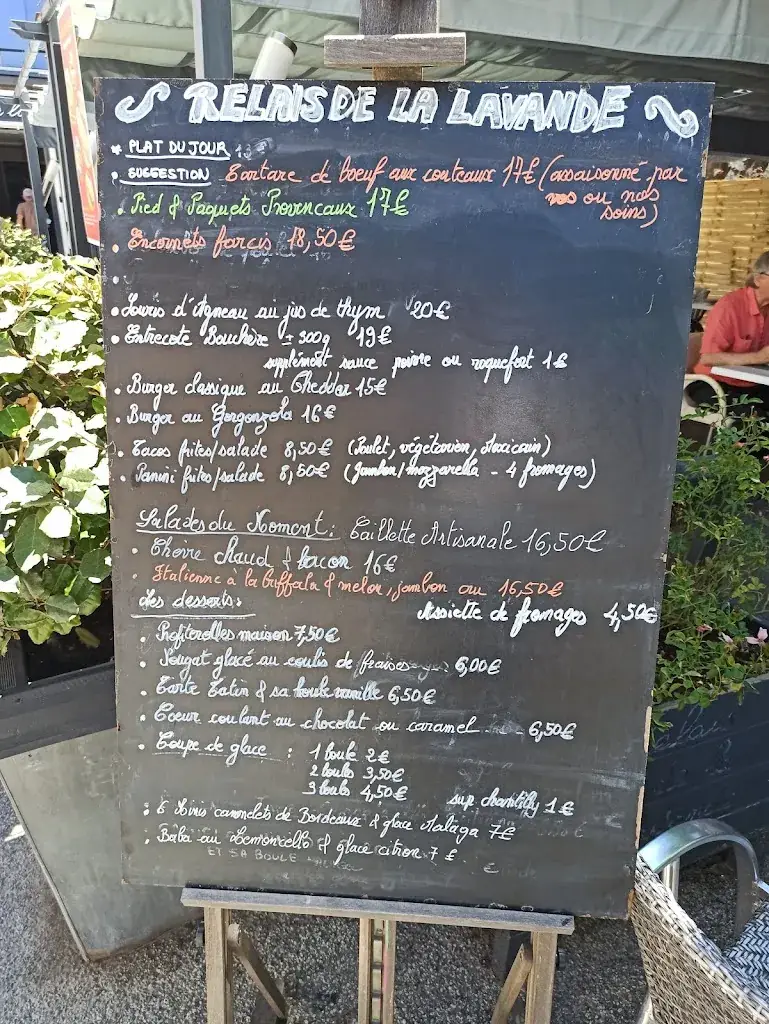 RELAIS DE LA LAVANDE
PLAT DU JOUR 13
SUGGESTION Tartare de boeuf aux couteaux 17€ (assaisonné par
vos ou nos
soins)
Pied & Paquets Provencaux 17€
Encornets farcis 18,50€
Souris d'Agneau au jus de thym 20€
Entrecote Bouchère ± 300g 19€
supplément sauce poivre ou roquefort 1€
Burger classique au Chedder 15€
Burger au Gorgonzola 16€
Tacos frites/salade 8,50€ (Poulet, végétarien, Mexicain)
Panini frites/salade 8,50€ (Jambon/mozzarella - 4 fromages)
Salades du Moment: Caillette Artisanale 16,50€
Chèvre chaud & bacon 16€
Italienne à la buffala & melon, jambon cru 16,50€
Les desserts:
Assiette de fromages 4,50€
Profiterolles maison 7,50€
Nougat glacé au coulis de fraises 6,00€
Tarte Tatin & sa boule vanille 6,50€
Coeur coulant au chocolat ou caramel 6,50€
Coupe de glace : 1 boule 2€
2 boules 3,50€
3 boules 4,50€
sup chantilly 1€
6 Minis cannelets de Bordeaux & glace Malaga 7€
Baba au Lemoncello & glace citron 7€
ET SA BOULE